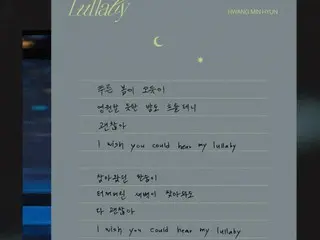 Lullaby
HWANG MIN HYUN
푸른 봄이 오듯이
영원할 듯한 밤도 흐를테니
괜찮아
I wish you could hear my lullaby
찾아왔던 한숨이
터져버린 새벽이 찾아와도
다 괜찮아
I wish you could hear my lullaby